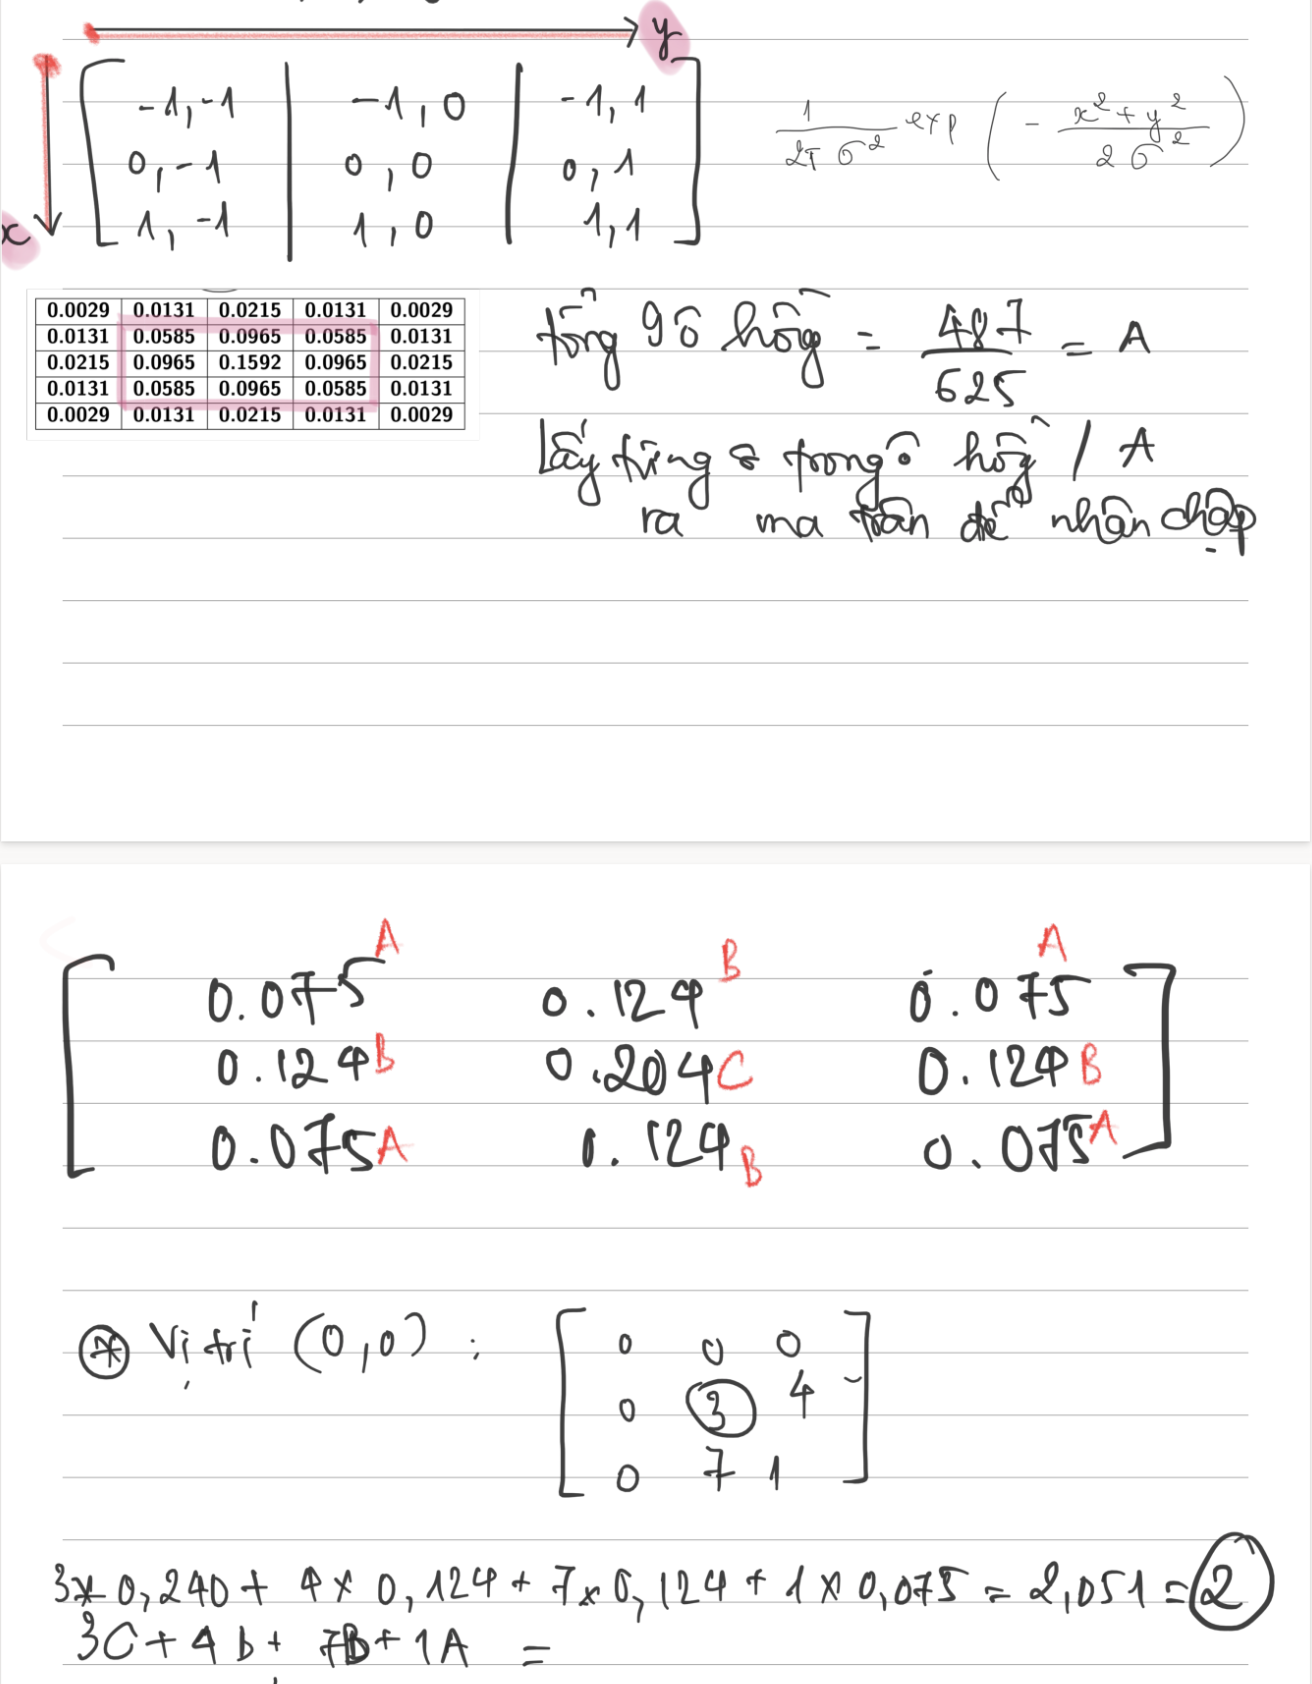 y
-1,-1 | -1,0 | -1,1
0,-1 | 0,0 | 0,1
x 1,-1 | 1,0 | 1,1
1/(2π σ²) exp (- (x²+y²)/(2σ²))
0.0029 0.0131 0.0215 0.0131 0.0029
0.0131 0.0585 0.0965 0.0585 0.0131
0.0215 0.0965 0.1592 0.0965 0.0215
0.0131 0.0585 0.0965 0.0585 0.0131
0.0029 0.0131 0.0215 0.0131 0.0029
tổng 9 ô hồng = 487/625 = A
Lấy từng số trong ô hồng / A
ra ma trận để nhân chập
0.075 A 0.124 B 0.075 A
0.124 B 0.204 C 0.124 B
0.075 A 0.124 B 0.075 A
* Vị trí (0,0) :
0 0 0
0 3 4
0 7 1
3x 0,240 + 4 x 0,124 + 7x0,124 + 1 x 0,075 = 2,051 = 2
3C + 4b + 7B + 1A =